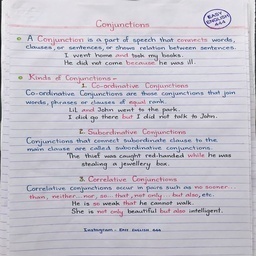 Conjunctions
EASY ENGLISH 444
A Conjunction is a part of speech that connects words,
clauses, or sentences, or shows relation between sentences.
I went home and took my books.
He did not come because he was ill.
Kinds of Conjunctions -
1. Co-ordinative Conjunctions
Co-ordinative Conjunctions are those conjunctions that join
words, phrases or clauses of equal rank.
Lil and John went to the park.
I did go there but I did not talk to John.
2. Subordinative Conjunctions
Conjunctions that connect subordinate clause to the
main clause are called subordinative conjunctions.
The thief was caught red-handed while he was
stealing a jewellery box.
3. Correlative Conjunctions
Correlative conjunctions occur in pairs such as no sooner...
than, neither... nor, so... that, not only... but also, etc.
He is so weak that he cannot walk.
She is not only beautiful but also intelligent.
Instagram - EASY ENGLISH 444